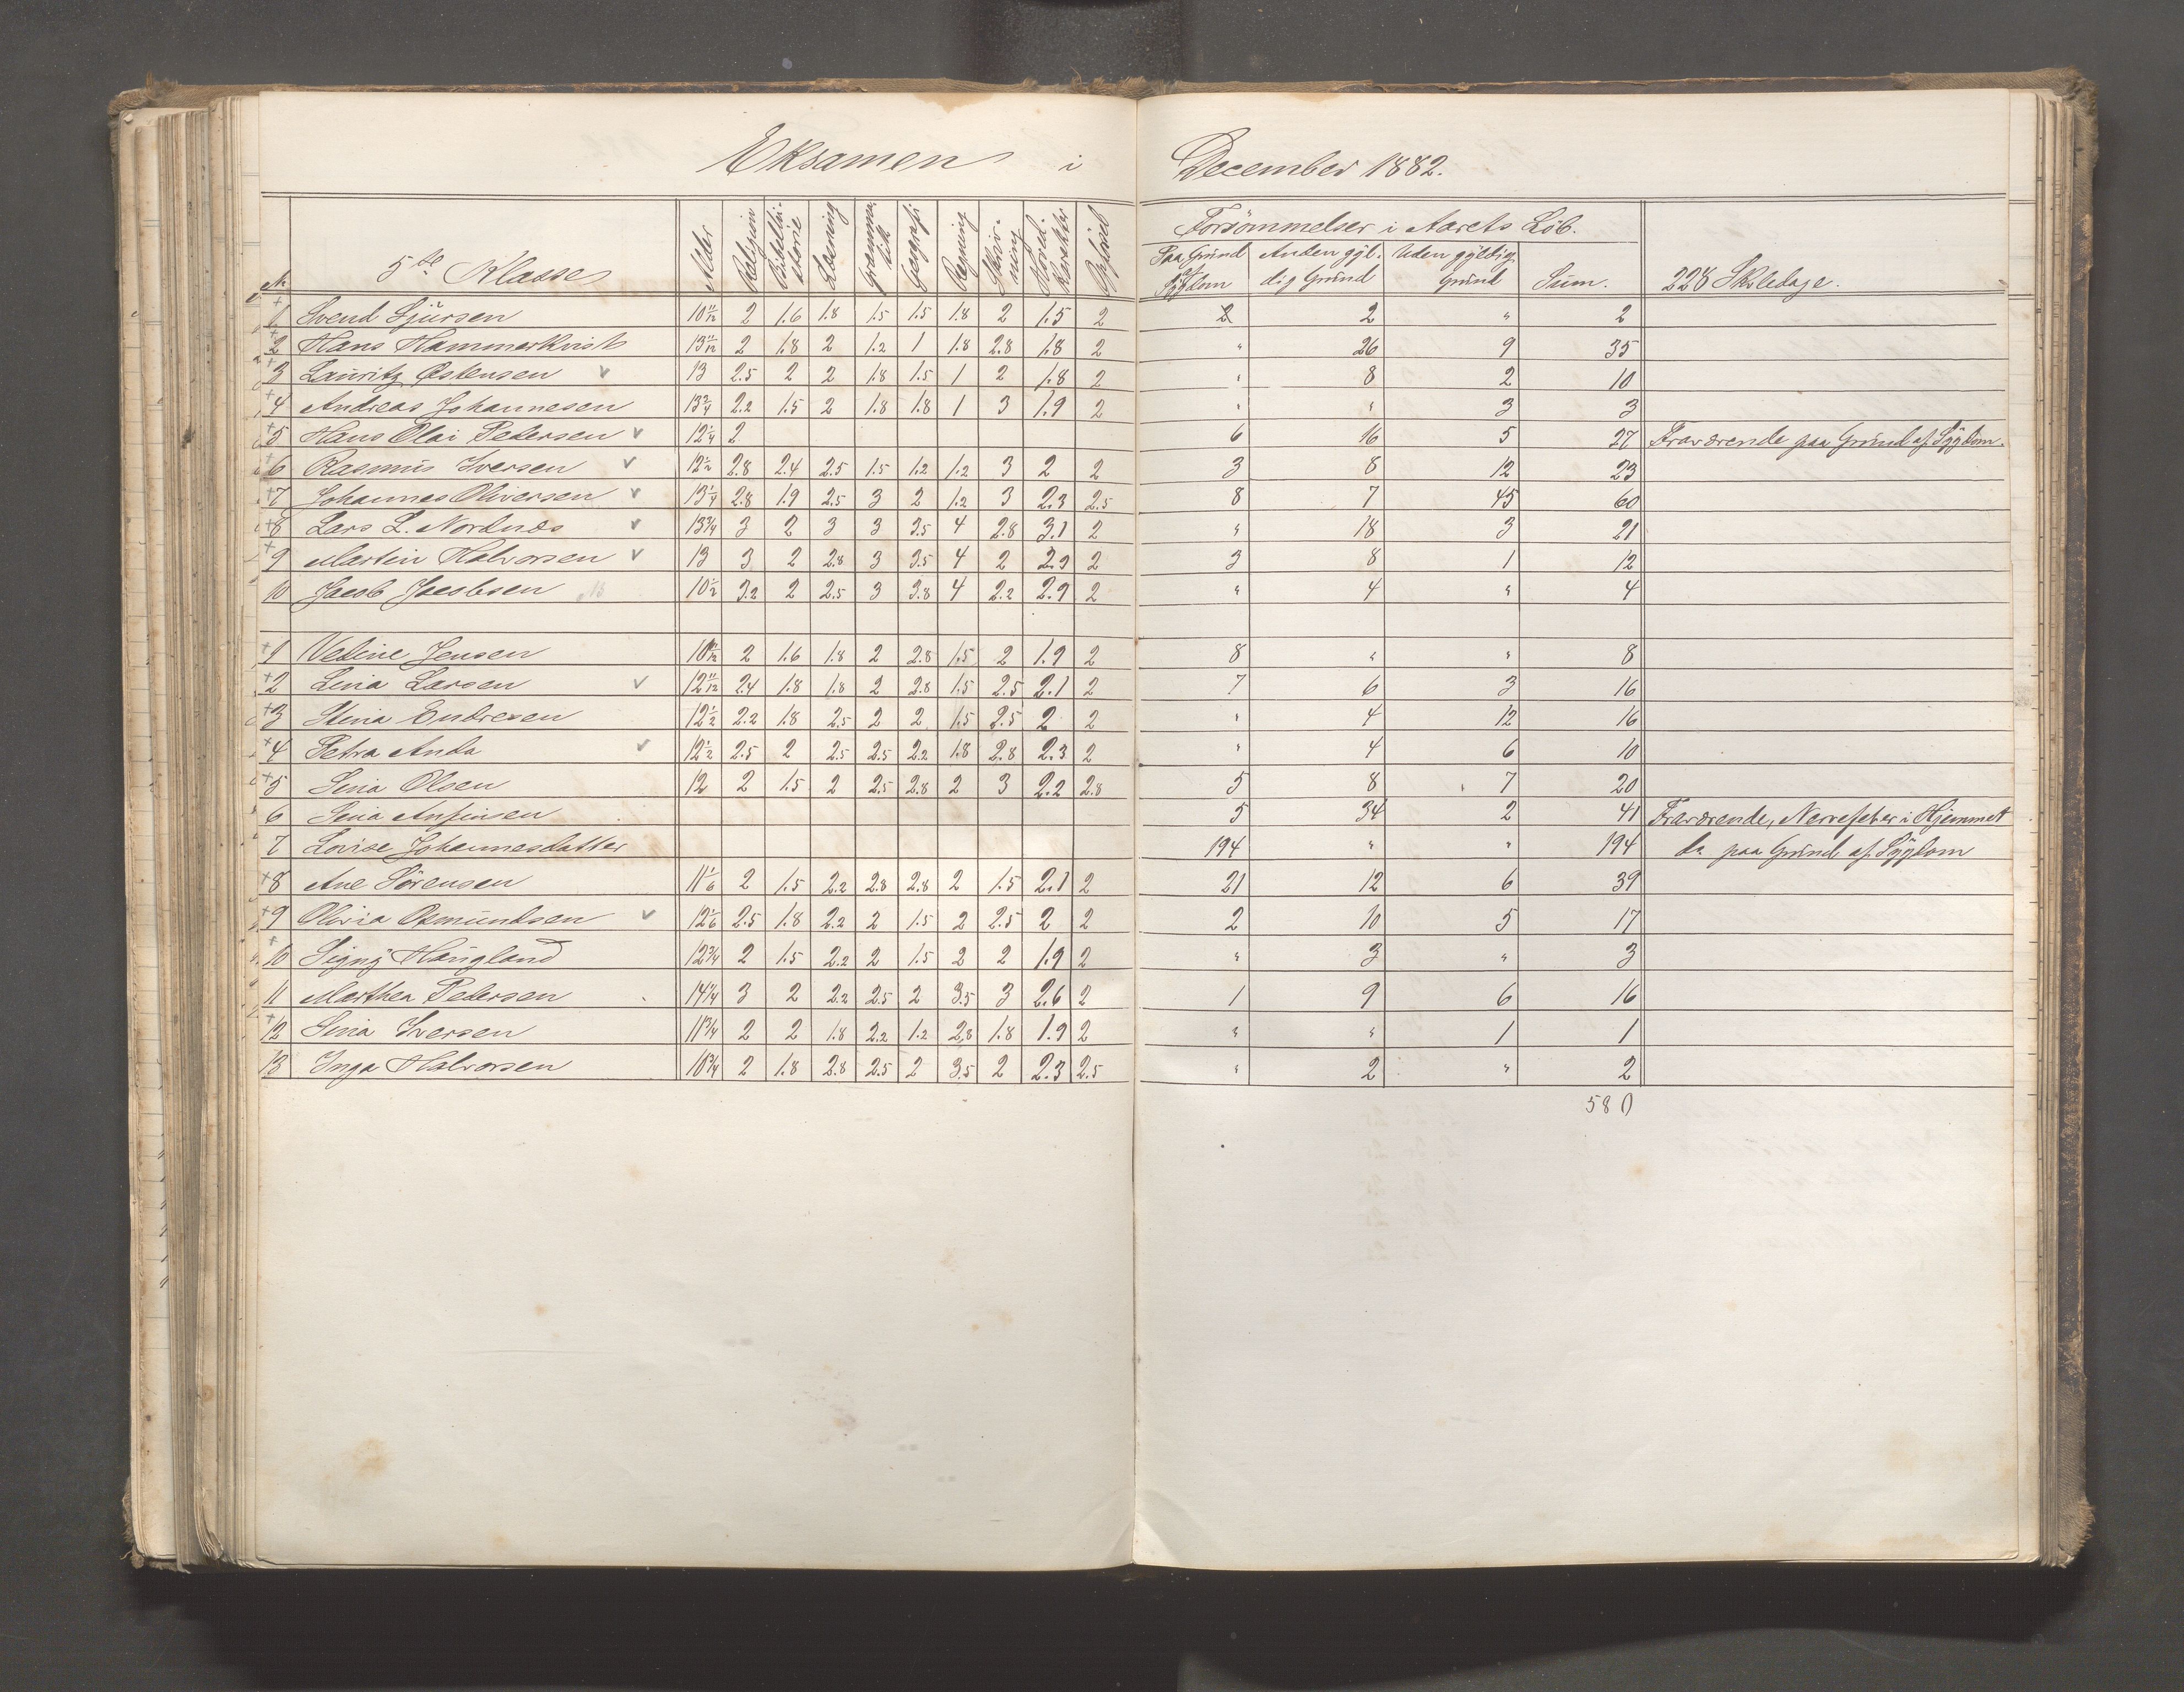 Eksamen i December 1882.
№ 5te Klasse Alder Religion Bibelhistorie Læsning Grammatik Geografi Regning Skrivning Hoved-Karakter Opførsel Forsømmelser i Aarets Löb.
Paa Grund af Sygdom Anden gyldig Grund Uden gyldig Grund Sum. 228 Skoledage.
1 Svend Sjursen 10 11/12 2 1.6 1.8 1.5 1.5 1.8 2 1.5 2 2 2 " 2
2 Hans Hammerkvist 13 11/12 2 1.8 2 1.2 1 1.8 2.8 1.8 2 " 26 9 35
3 Lauritz Østensen v 13 2.5 2 2 1.8 1.5 1 2 1.8 2 " 8 2 10
4 Andreas Johannesen 13 3/4 2.2 1.5 2 1.8 1.8 1 3 1.9 2 " " 3 3
5 Hans Olai Pedersen v 12 1/4 2 6 16 5 27 Fraværende paa Grund af Sygdom.
6 Rasmus Iversen v 12 1/2 2.8 2.4 2.5 1.5 1.2 1.2 3 2 2 3 8 12 23
7 Johannes Oliversen v 13 1/4 2.8 1.9 2.5 3 2 1.2 3 2.3 2.5 8 7 45 60
8 Lars L. Nordnæs v 13 3/4 3 2 3 3 3.5 4 2.8 3.1 2 " 18 3 21
9 Martin Halvorsen v 13 3 2 2.8 3 3.5 4 2 2.9 2 3 8 1 12
10 Jacob Jacobsen 10 1/2 3.2 2 2.5 3 3.8 4 2.2 2.9 2 " 4 " 4
1 Vedine Jensen 2 1.6 1.8 2 2.8 1.5 2 1.9 2 8 " " 8
2 Lina Larsen v 12 11/12 2.4 1.8 1.8 2 2.8 1.5 2.5 2.1 2 7 6 3 16
3 Stina Endresen 12 1/2 2.2 1.8 2.5 2 2 1.5 2.5 2 2 " 4 12 16
4 Petra Anda v 12 1/2 2.5 2 2.5 2.5 2.2 1.8 2.8 2.3 2 " 4 6 10
5 Sina Olsen 12 2 1.5 2 2.5 2.8 2 3 2.2 2.8 5 8 7 20
6 Sina Anfinsen 5 34 2 41 Fraværende, Nervefeber i Hjemmet
7 Lovise Johannesdatter 194 " " 194 do paa Grund af Sygdom
8 Ane Sörensen 11 1/6 2 1.5 2.2 2.8 2.8 2 1.5 2.1 2 21 12 6 39
9 Olivia Osmundsen v 12 1/6 2.5 1.8 2.2 2 1.5 2 2.5 2 2 2 10 5 17
10 Signy Haugland 12 3/4 2 1.5 2.2 2 1.5 2 2 1.9 2 " 3 " 3
11 Marthea Pedersen 14 1/4 3 2 2.2 2.5 2 3.5 3 2.6 2 1 9 6 16
12 Sina Iversen 11 3/4 2 2 1.8 2.2 1.2 2.8 1.8 1.9 2 " " 1 1
13 Inga Halvorsen 10 3/4 2 1.8 2.8 2.5 2 3.5 2 2.3 2.5 " 2 " 2
580